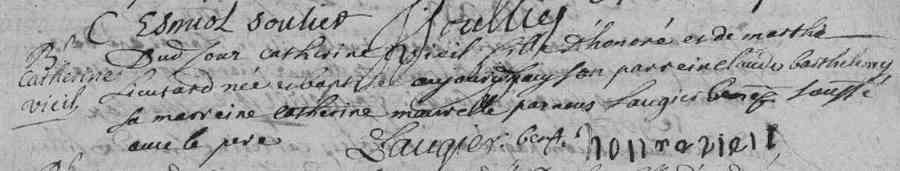 C Esmiol Soulier Soullier
Bt Catherine Vieil
Dud Jour catherine Vieil fille d'honoré et de marthe
Lieutard née et baptisee aujourdhuy son parrein claude barthelemy
sa marreine catherine maurelle par nous Laugier benef soussé
avec le pere Laugier benef. honore vieil